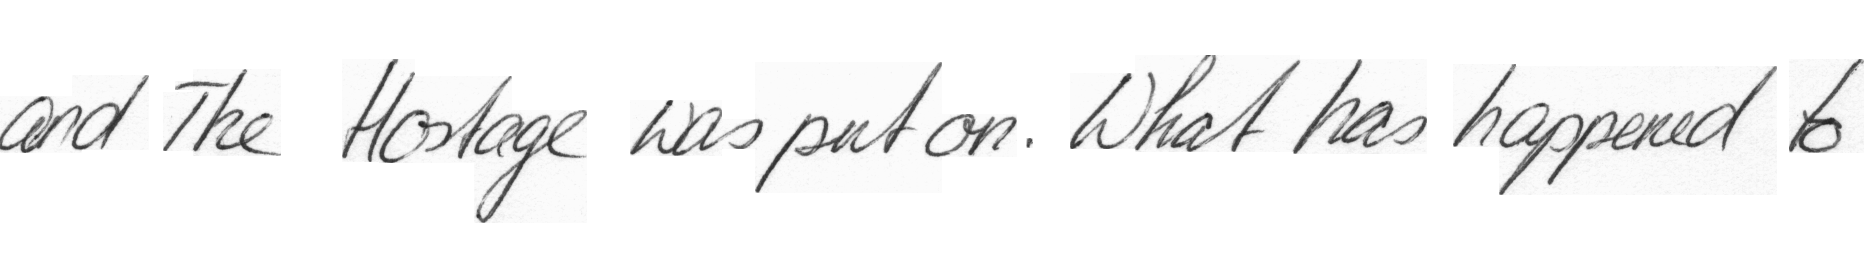 and The Hostage was put on. What has happened to